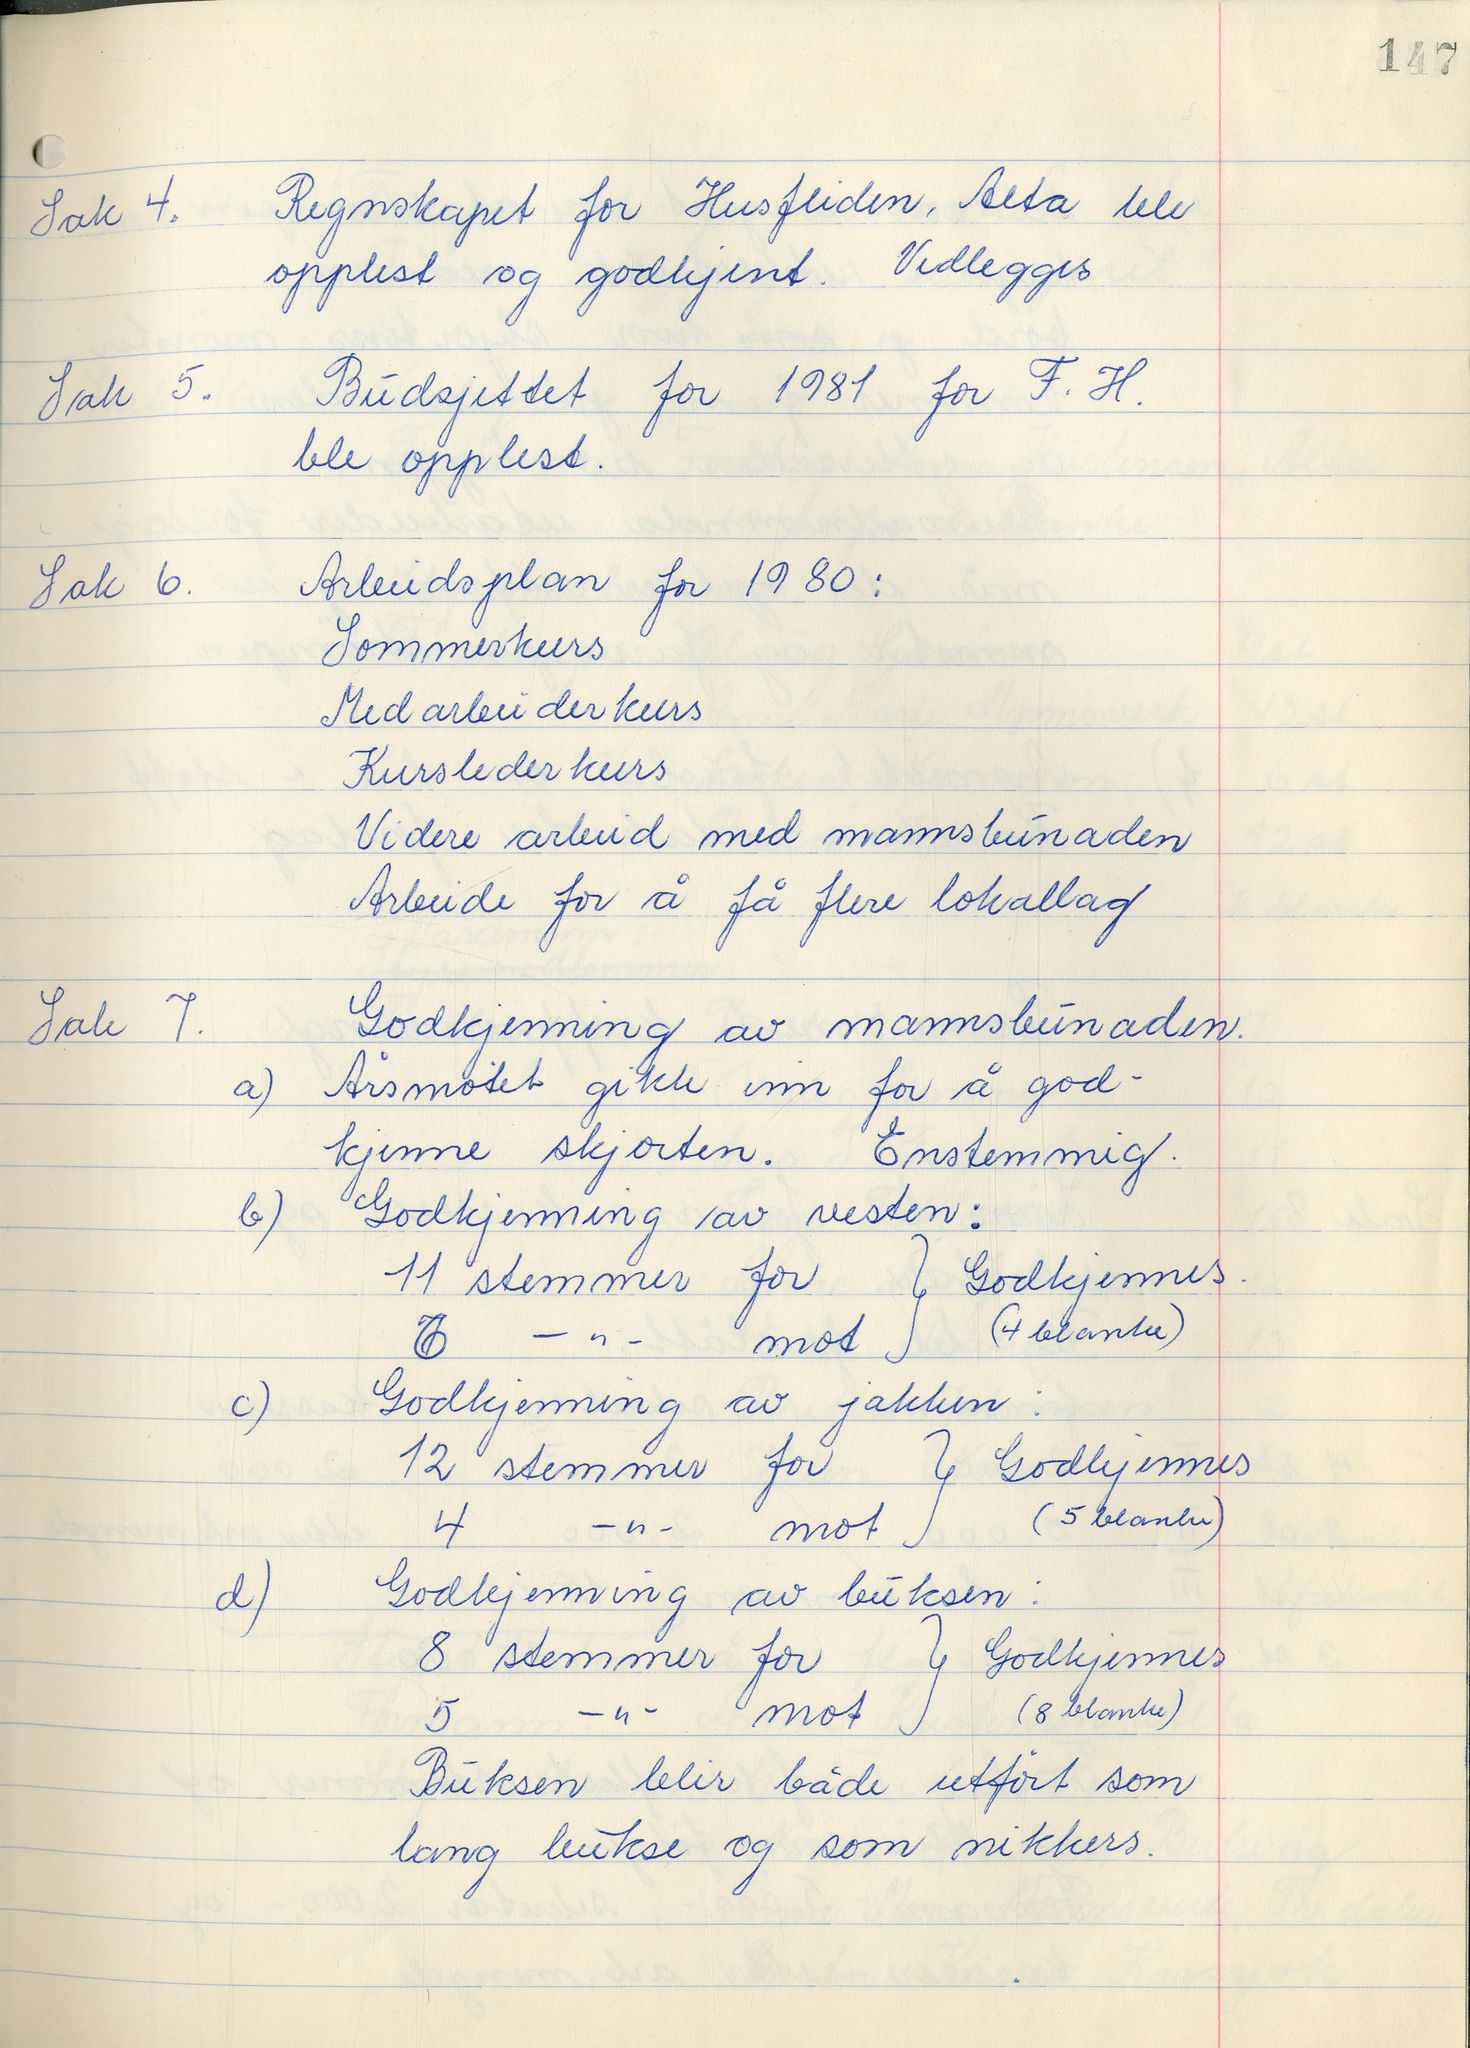 147
Sak 4. Regnskapet for Husfliden, Alta ble
opplest og godkjent. Vedlegges
Sak 5. Budsjettet for 1981 for F. H.
ble opplest.
Sak 6. Arbeidsplan for 1980:
Sommerkurs
Medarbeiderkurs
Kurslederkurs
Videre arbeid med mannsbunaden
Arbeide for å få flere lokallag
Sak 7. Godkjenning av mannsbunaden.
a) Årsmøtet gikk inn for å god-
kjenne skjorten. Enstemmig.
b) Godkjenning av vesten:
11 stemmer for } Godkjennes.
6 -"- mot (4 blanke)
c) Godkjenning av jakken:
12 stemmer for } Godkjennes
4 -"- mot (5 blanke)
d) Godkjenning av buksen:
8 stemmer for } Godkjennes
5 -"- mot (8 blanke)
Buksen blir både utført som
lang bukse og som nikkers.